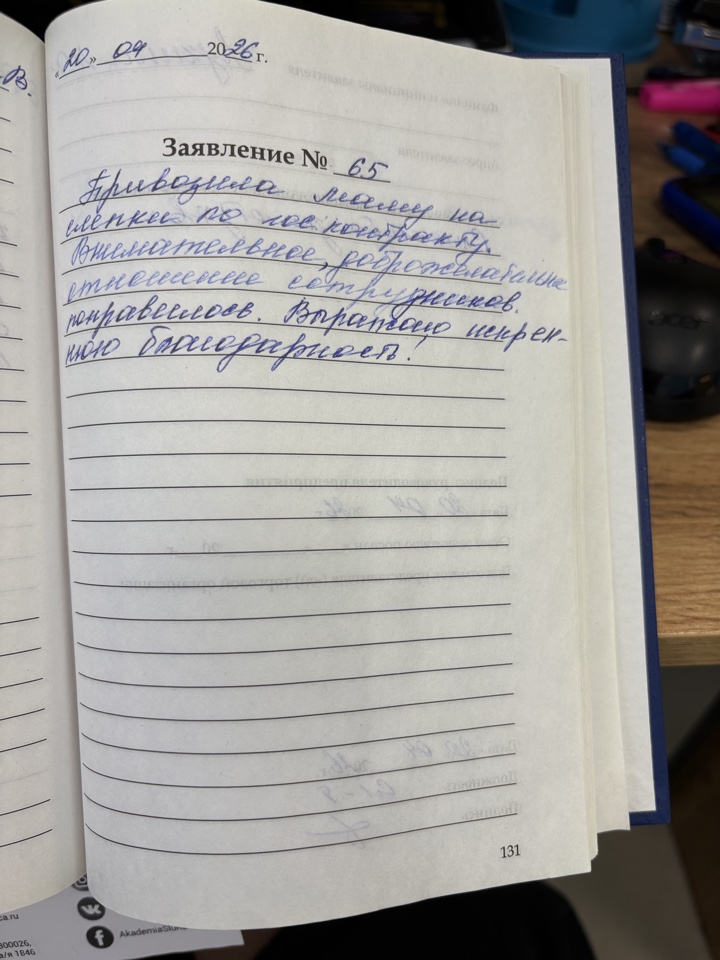 В.
«20» 04 2026 г.
Заявление № 65
Привозила маму на
слепки по гос контракту.
Внимательное, доброжелательное
отношение сотрудников.
понравилось. Выражаю искрен-
нюю благодарность!
131
ca.ru
300026,
а/я 1846
AkademiaSluha